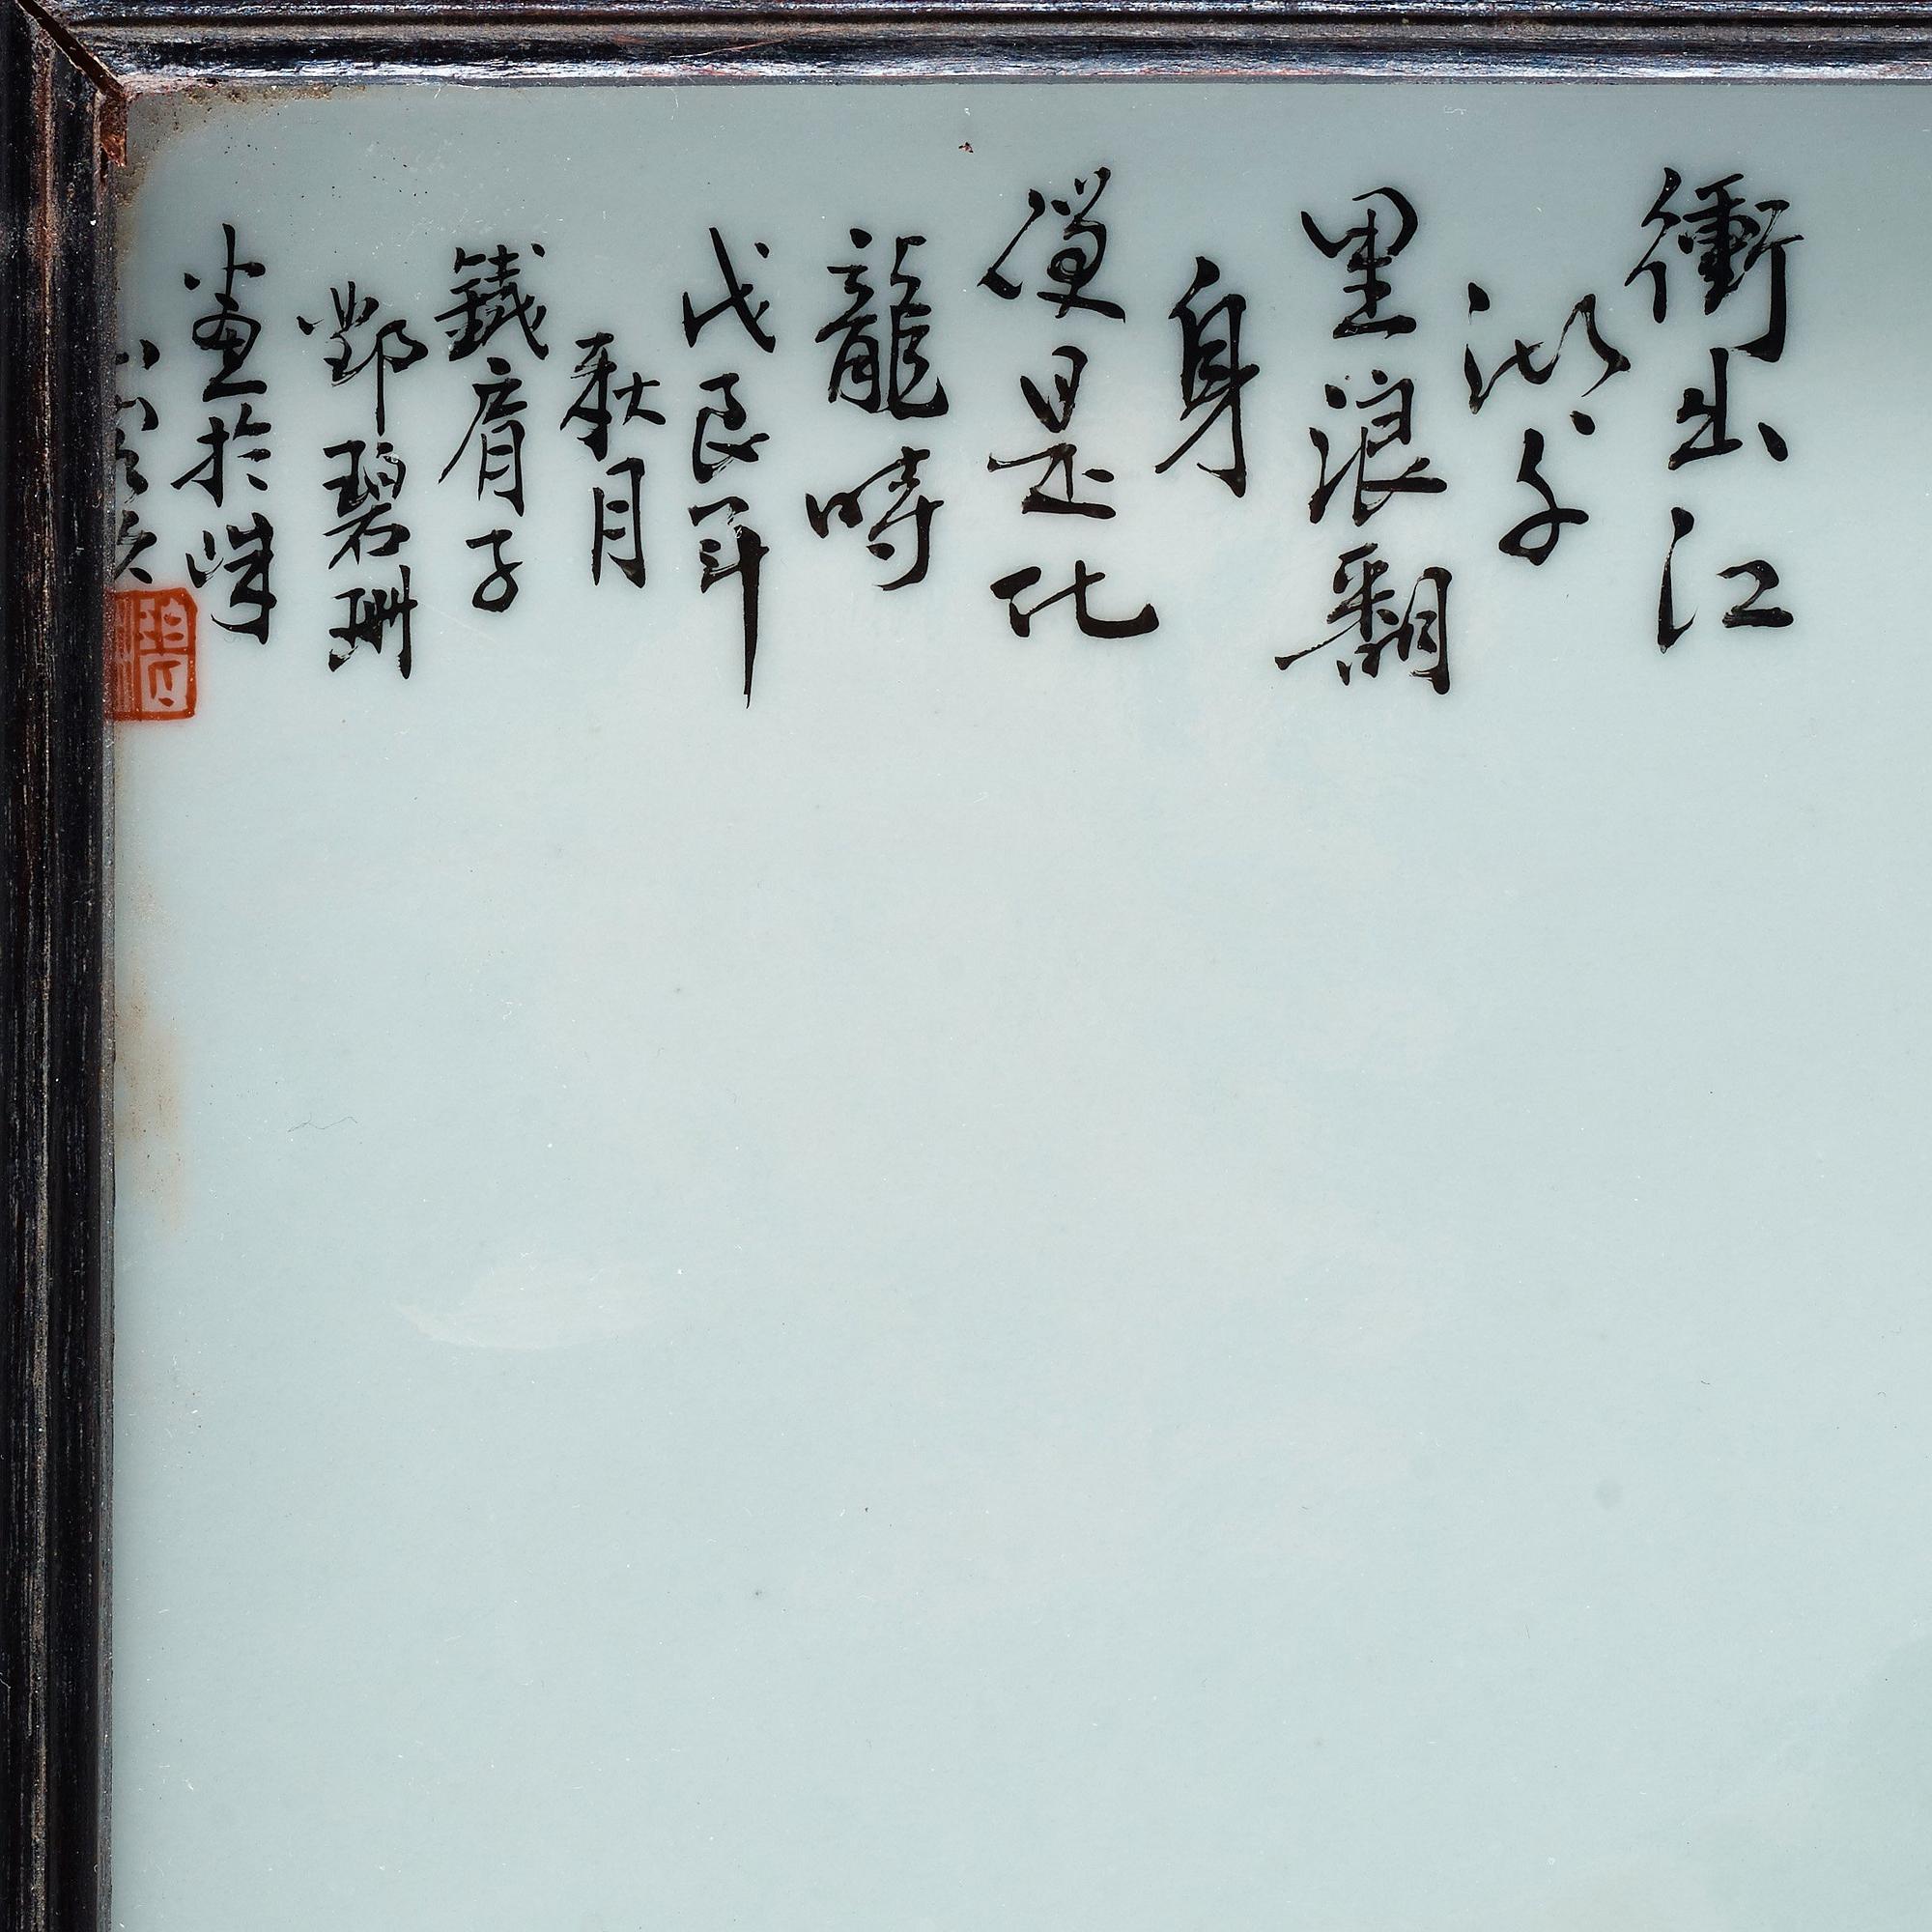 衝出江
湖千
里浪翻
身
便是化
龍時
戊辰年
秋月
鐵肩子
鄧碧珊
畫於